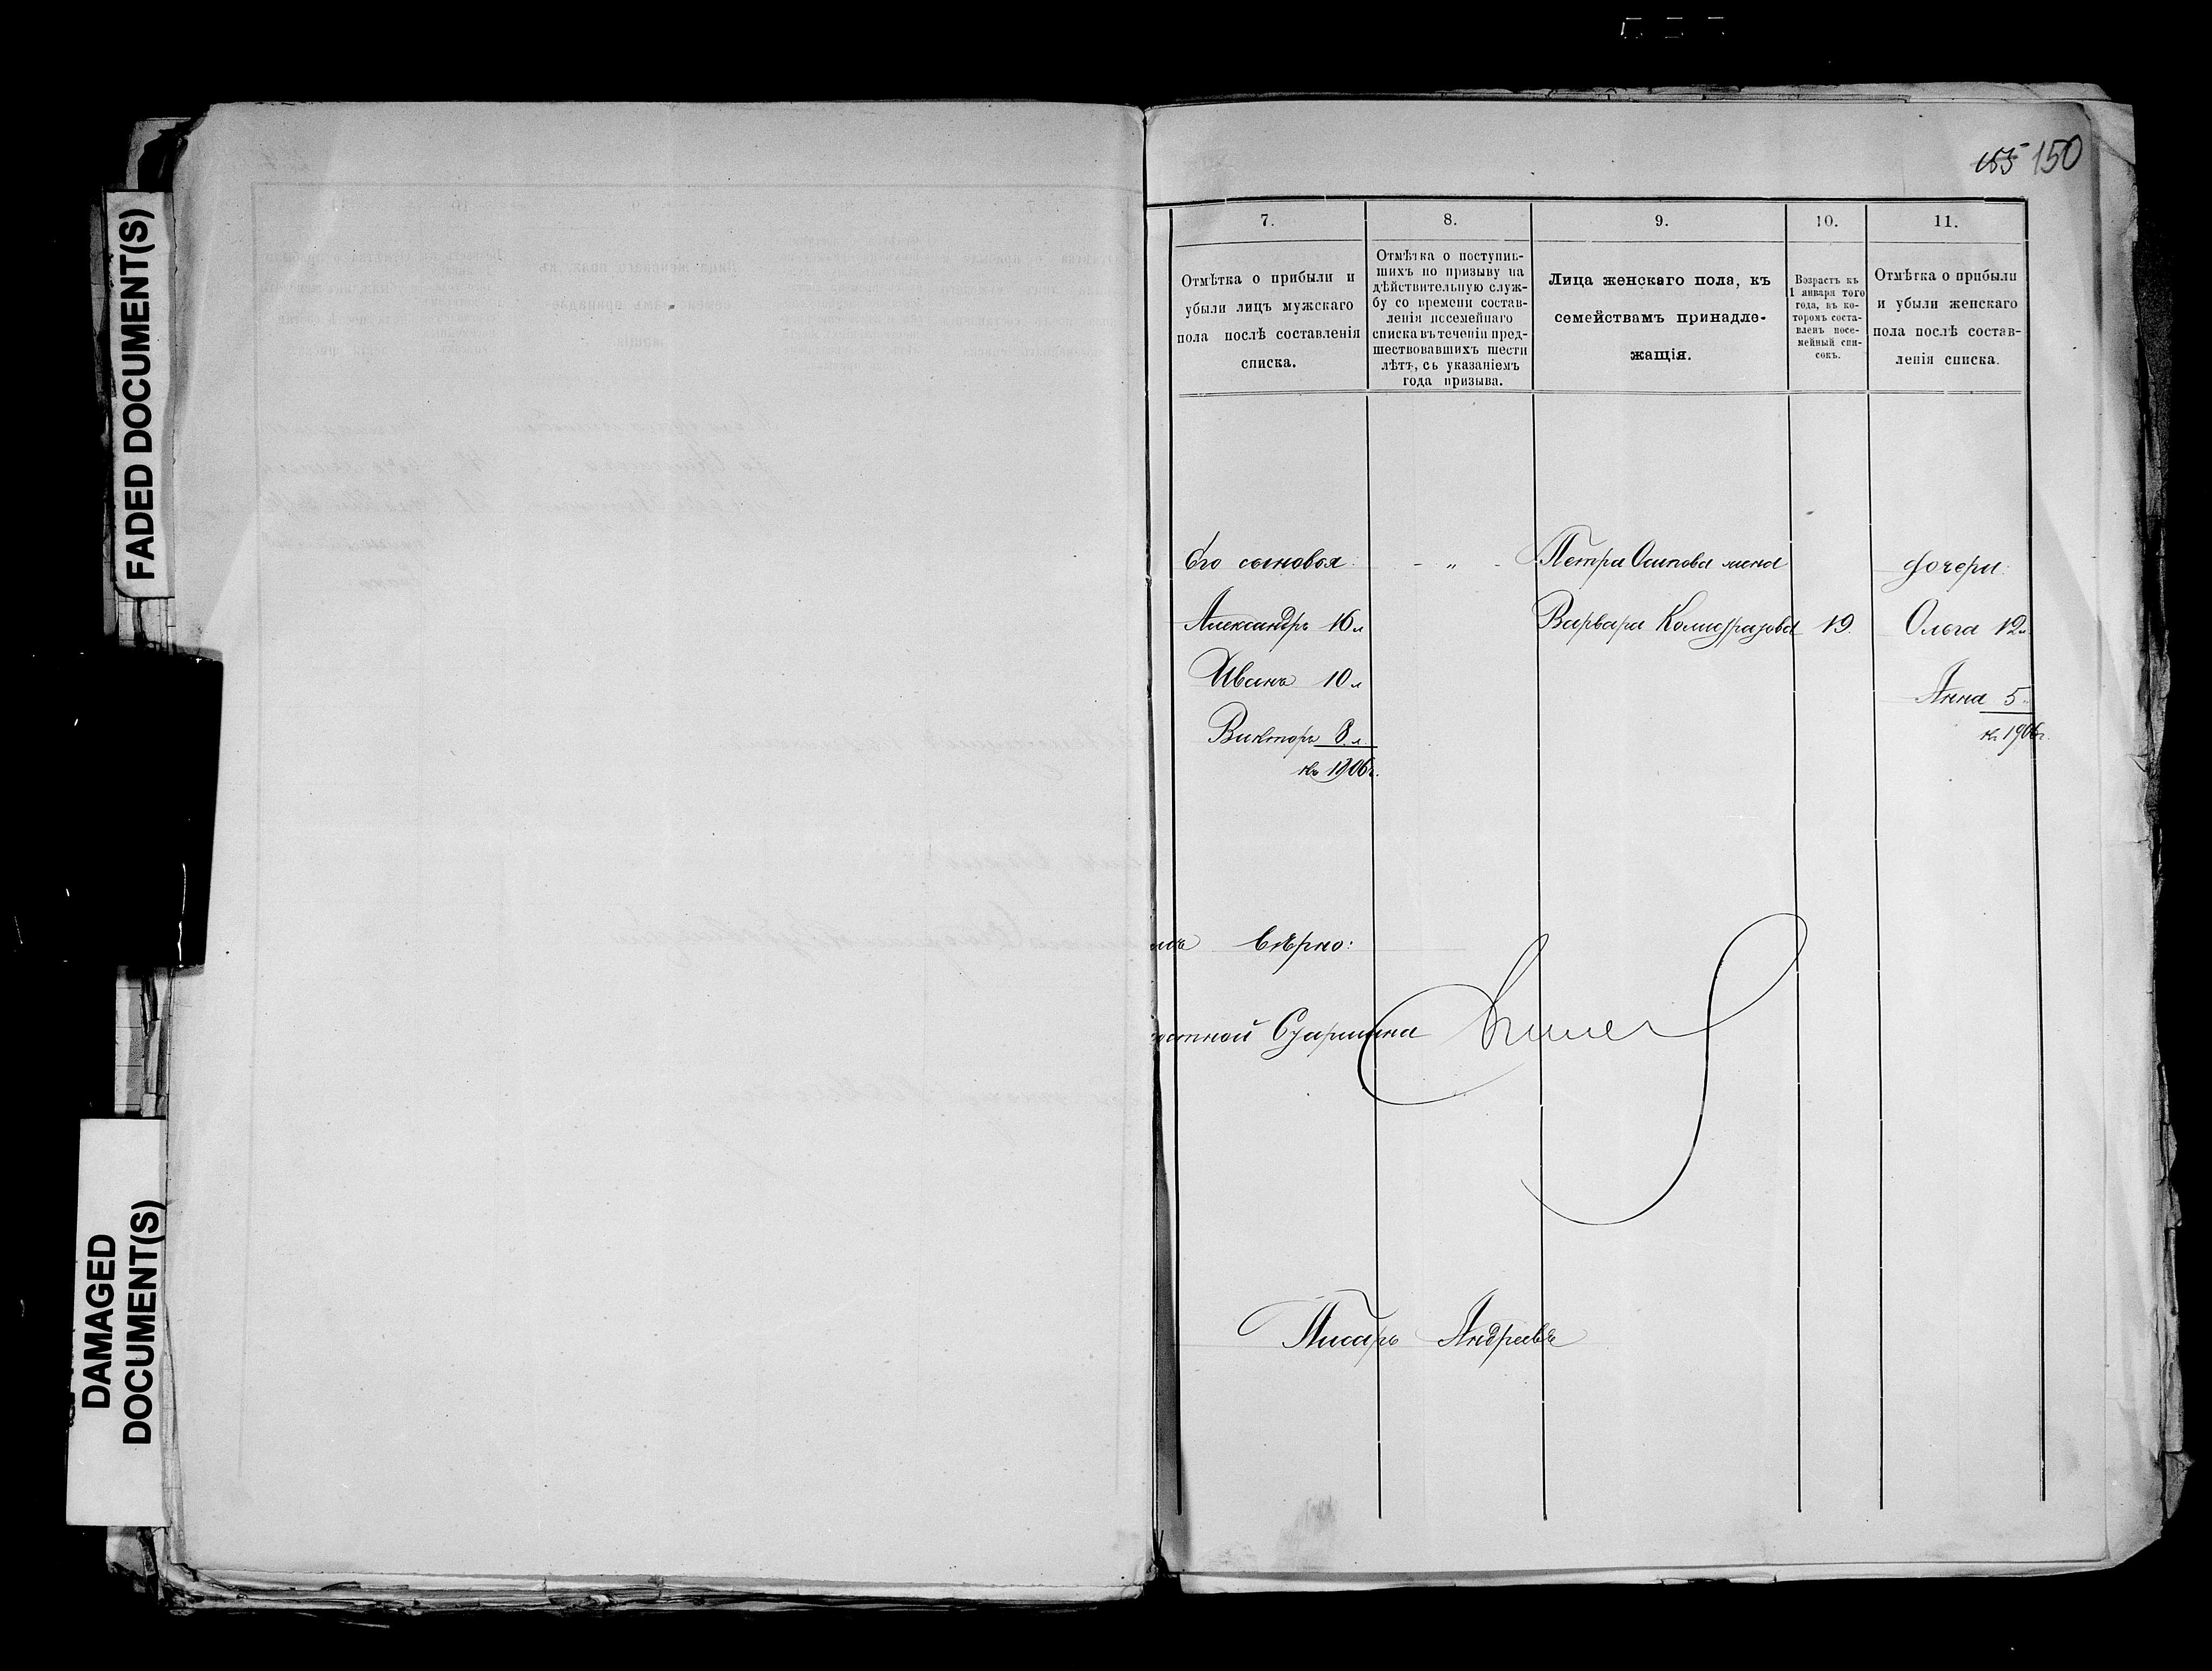 FADED DOCUMENT(S)
DAMAGED
DOCUMENT(S)
155 150
7.
Отмѣтка о прибыли и
убыли лицъ мужскаго
пола послѣ составленія
списка.
8.
Отмѣтка о поступив-
шихъ по призыву на
дѣйствительную служ-
бу со времени состав-
ленія посемейнаго
списка въ теченіи пред-
шествовавшихъ шести
лѣтъ, съ указаніемъ
года призыва.
9.
Лица женскаго пола, къ
семействамъ принадле-
жащія.
10.
Возрастъ къ
1 января того
года, въ ко-
торомъ соста-
вленъ посе-
мейный спи-
сокъ.
11.
Отмѣтка о прибыли
и убыли женскаго
пола послѣ состав-
ленія списка.
Его сыновья: - „ - Петра Осипова жена дочери:
Александръ 16 л Варвара 19. Ольга 12 л.
Иванъ 10 л
Анна 5 „
Викторъ 8 л.
къ 1906 г.
къ 1906 г.
вѣрно:
остной Старшина
Писарь Андреевъ